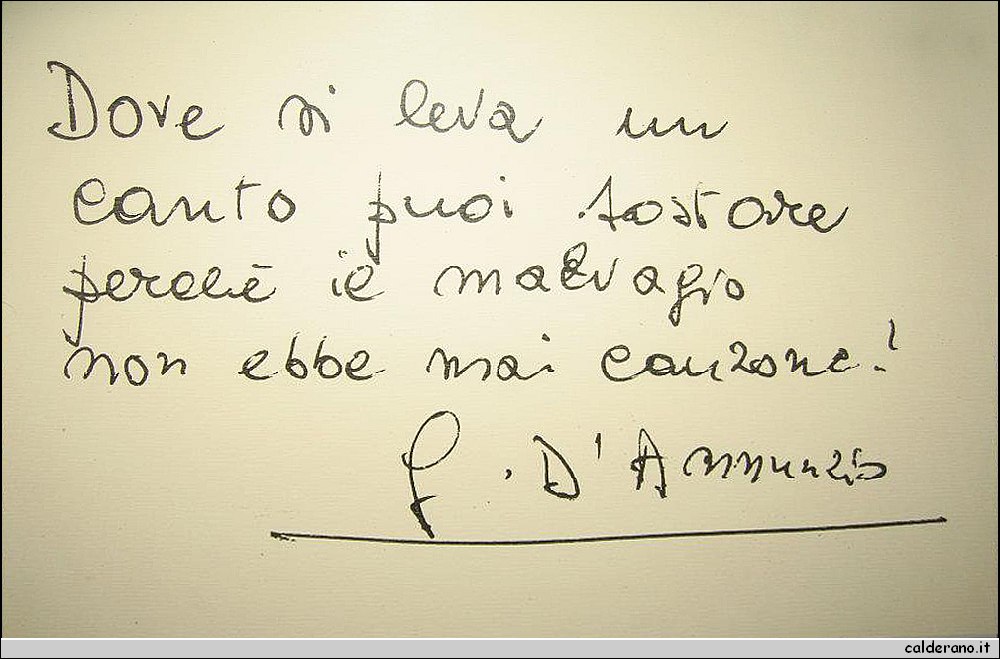 Dove si leva un
canto puoi sostare
perchè il malvagio
non ebbe mai canzone!
G. D'Annunzio
calderano.it